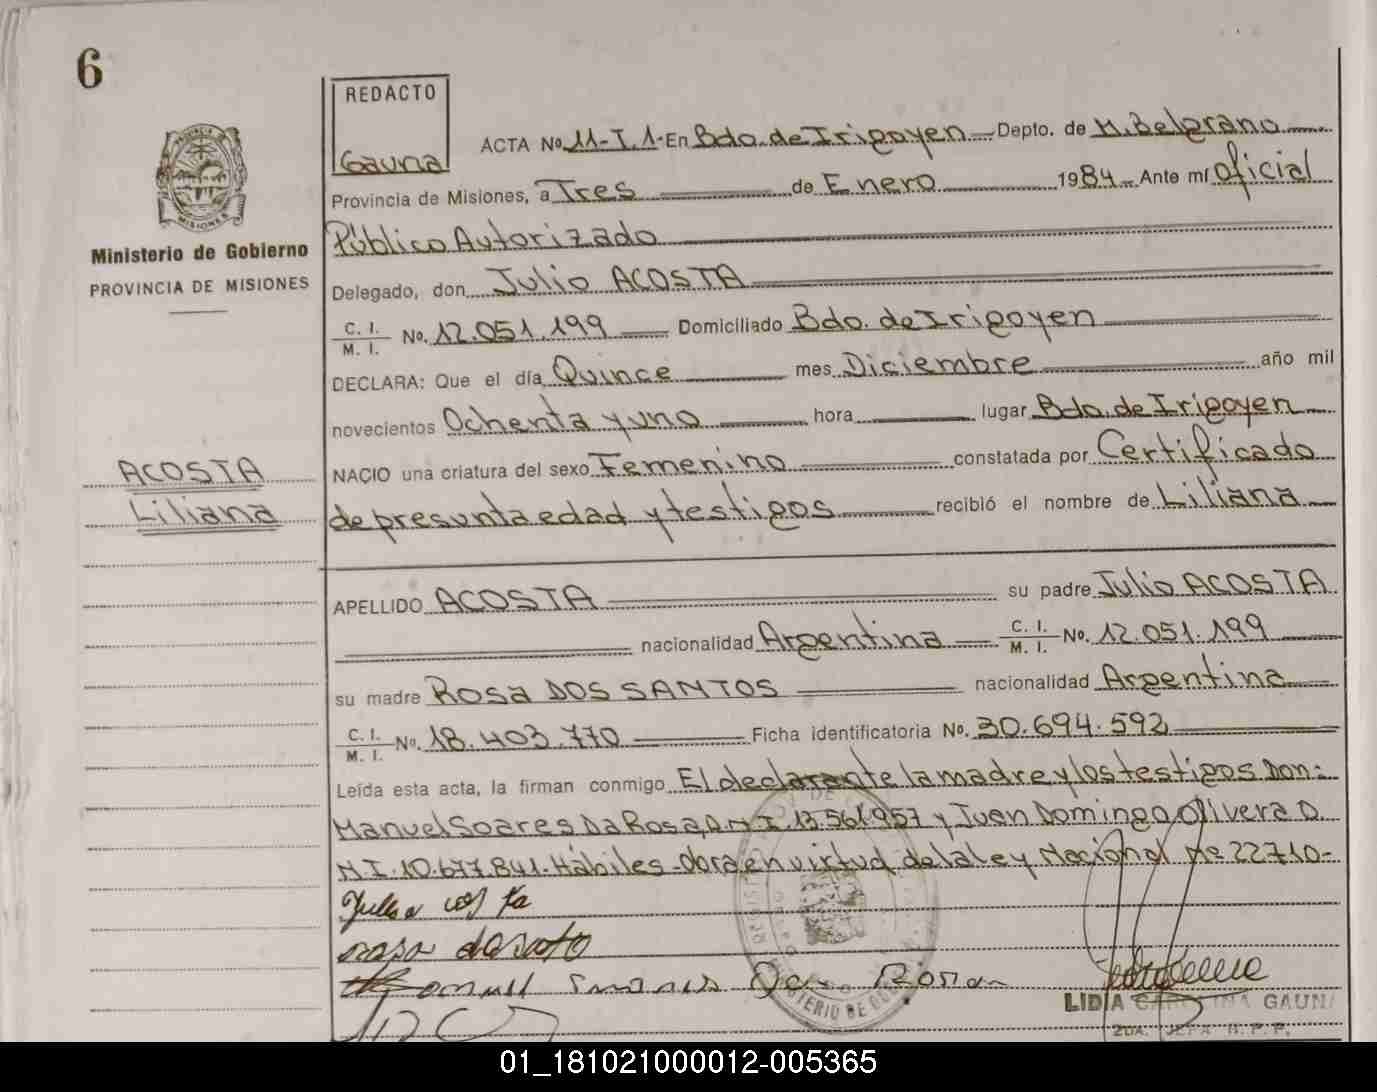 6
REDACTO
Gauna
ACTA No. 11-T.1- En Bdo. de Irigoyen Depto. de M. Belgrano
Provincia de Misiones, a Tres de Enero 1984 Ante mí Oficial
Público Autorizado
Delegado, don Julio ACOSTA
C. I.
M. I. No. 12.051.199 Domiciliado Bdo. de Irigoyen
DECLARA: Que el día Quince mes Diciembre año mil
novecientos Ochenta y uno hora lugar Bdo. de Irigoyen
NACIO una criatura del sexo Femenino constatada por Certificado
de presunta edad y testigos recibió el nombre de Liliana
APELLIDO ACOSTA su padre Julio ACOSTA
nacionalidad Argentina C. I.
M. I. No. 12.051.199
su madre Rosa DOS SANTOS nacionalidad Argentina
C. I.
M. I. No. 18.403.770 Ficha identificatoria No. 30.694.592
Leída esta acta, la firman conmigo El declarante la madre y los testigos Don:
Manuel Soares Da Rosa, D.M.I. 13.561.957 y Juan Domingo Olivera D.
M.I. 10.677.841. Hábiles- Obra en virtud de la ley Nacional Nº 22710-
Manuel Soares Da Rosa
LIDIA CAROLINA GAUNA
2DA. JEFA R.P.P.
PROVINCIA DE
MISIONES
Ministerio de Gobierno
PROVINCIA DE MISIONES
ACOSTA
Liliana
01_181021000012-005365